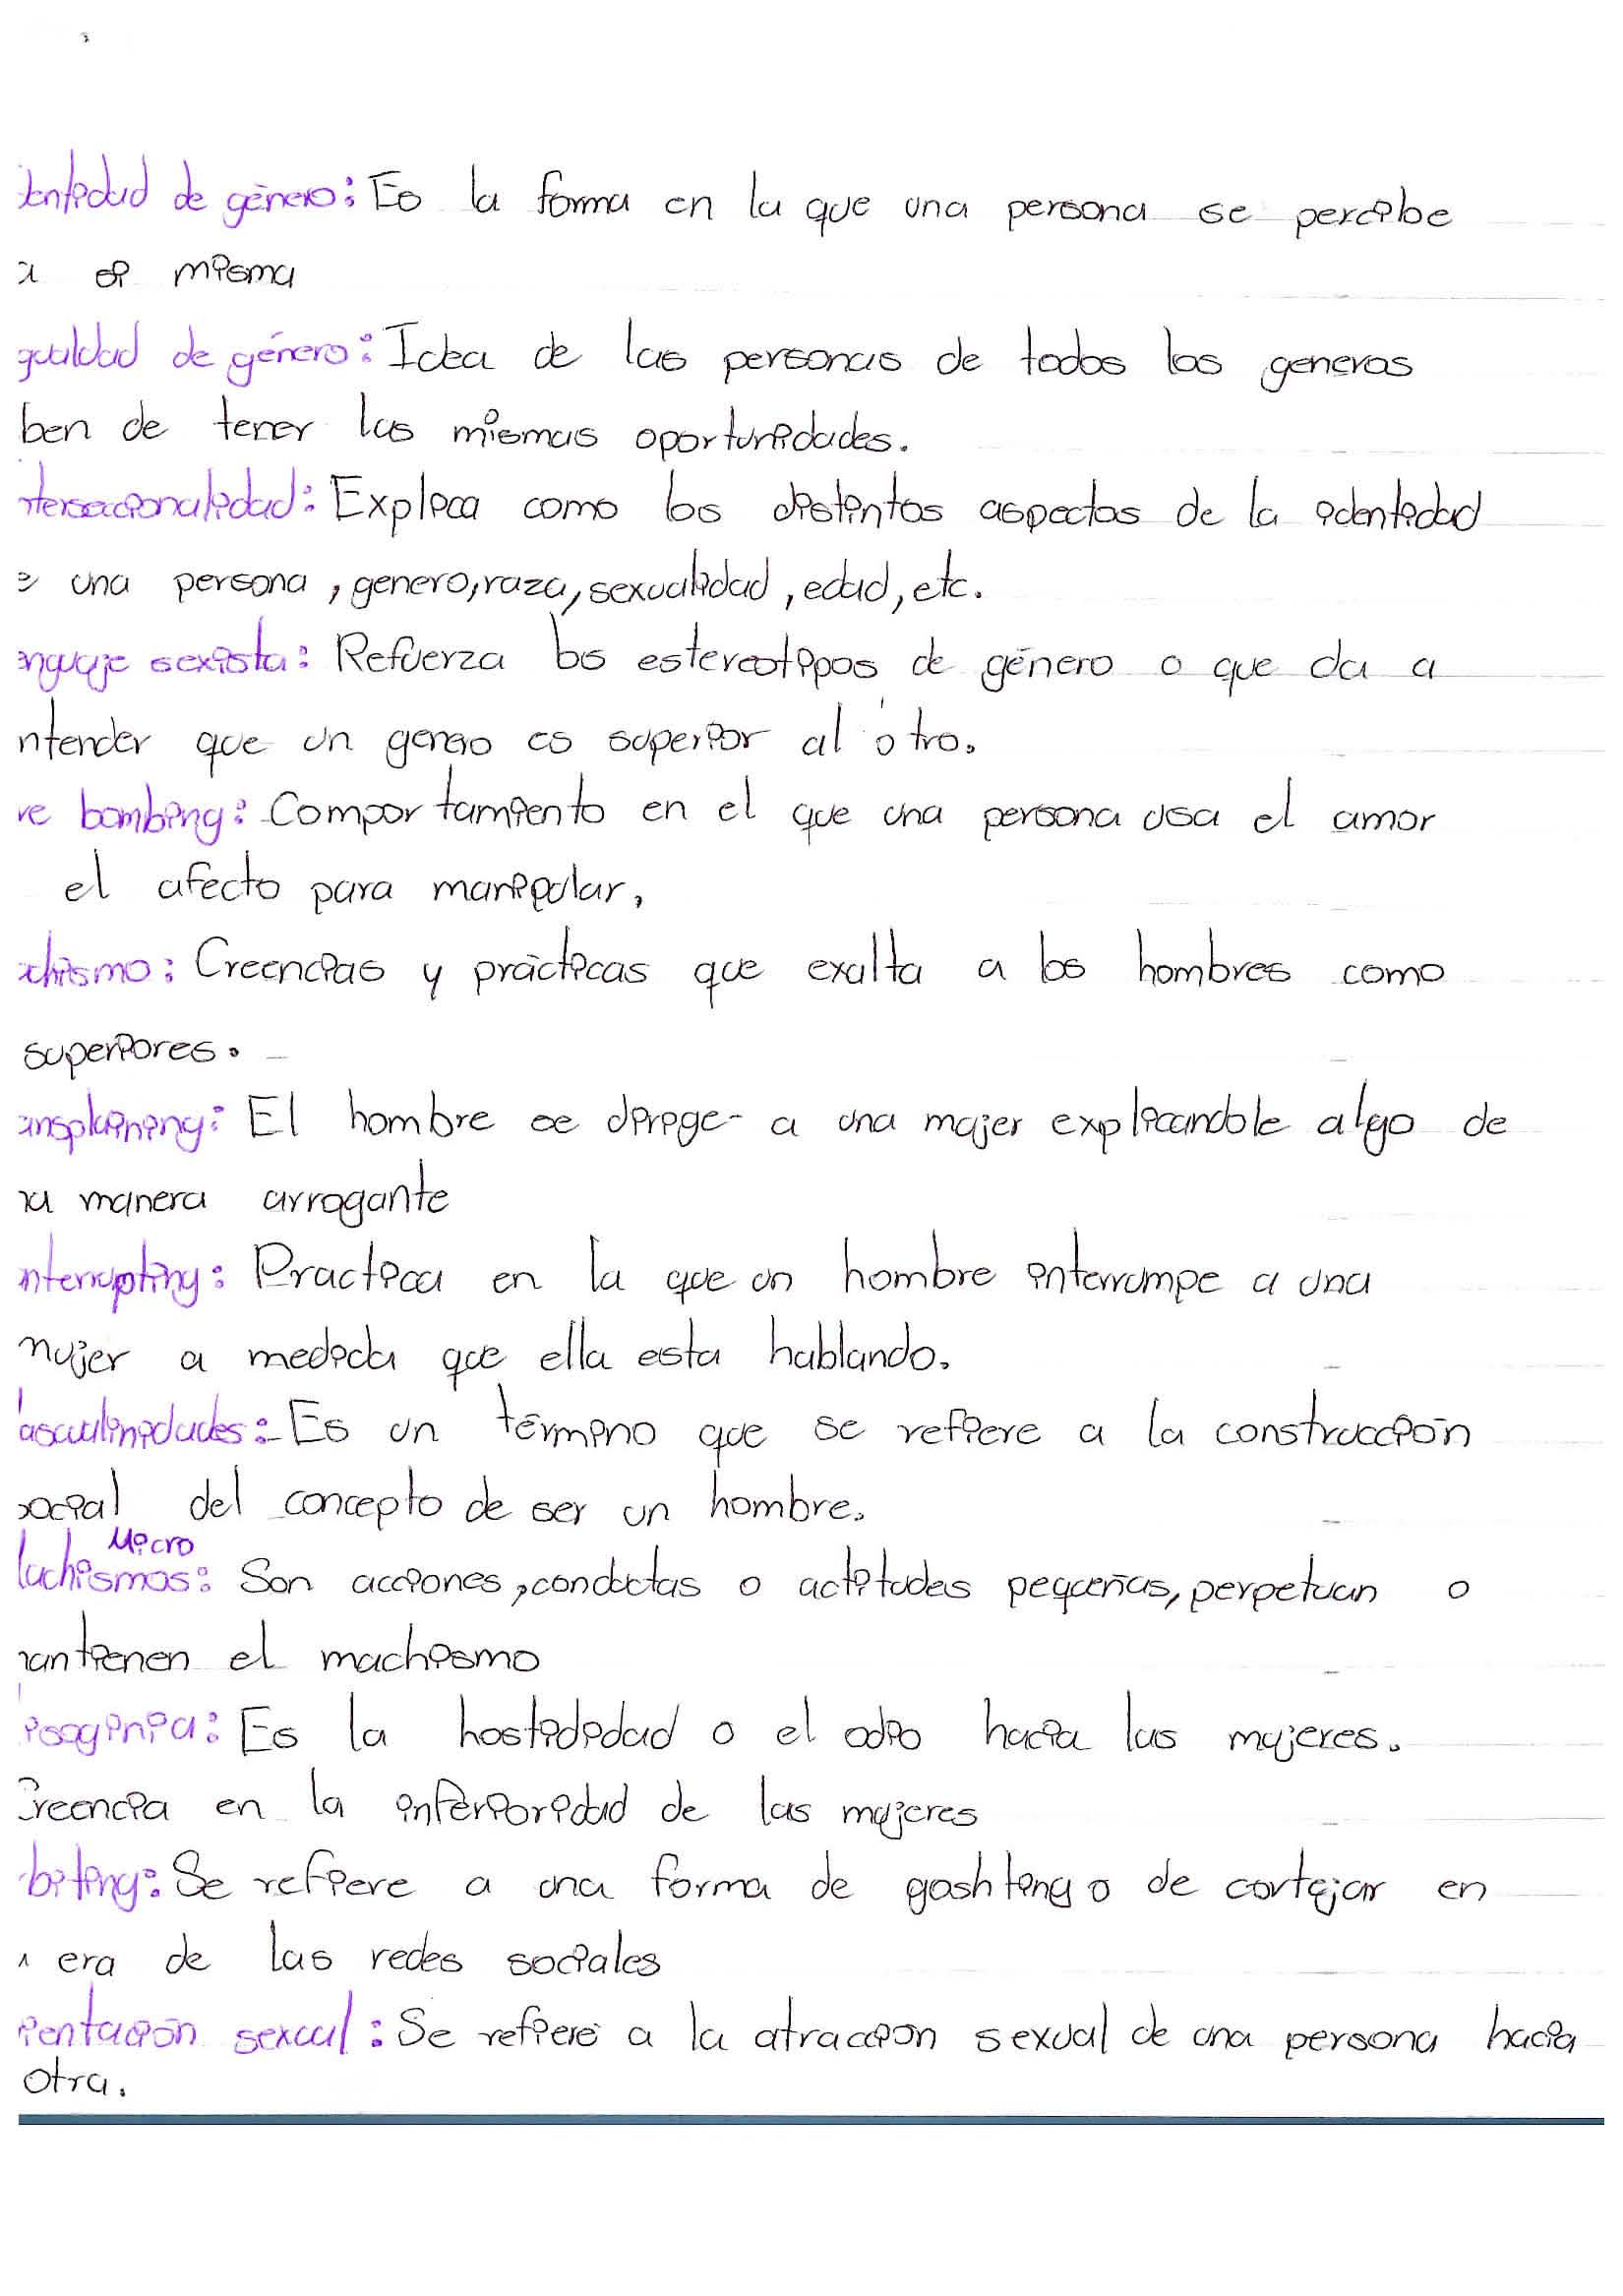 dentidad de género: Es la forma en la que una persona se percibe
a si misma
gualdad de género: Idea de las personas de todos los generos
ben de tener las mismas oportunidades.
nterseccionalidad: Explica como los distintos aspectos de la identidad
e una persona, genero, raza, sexualidad, edad, etc.
enguaje sexista: Refuerza los estereotipos de género o que da a
ntender que un genero es superior al otro.
ve bombing: Comportamiento en el que una persona usa el amor
el afecto para manipular,
achismo: Creencias y prácticas que exalta a los hombres como
superiores.
ansplaining: El hombre se dirige a una mujer explicandole algo de
na manera arrogante
nterrupting: Practica en la que un hombre interrumpe a una
mujer a medida que ella esta hablando.
asculinidades: Es un término que se refiere a la construcción
social del concepto de ser un hombre.
Micro
Machismos: Son acciones, conductas o actitudes pequeñas, perpetuan o
mantienen el machismo
isoginia: Es la hostididad o el odio hacia las mujeres.
Creencia en la inferioridad de las mujeres
biting: Se refiere a una forma de gashting o de cortejar en
a era de las redes sociales
ientación sexual: Se refiere a la atraccion sexual de una persona hacia
otra.